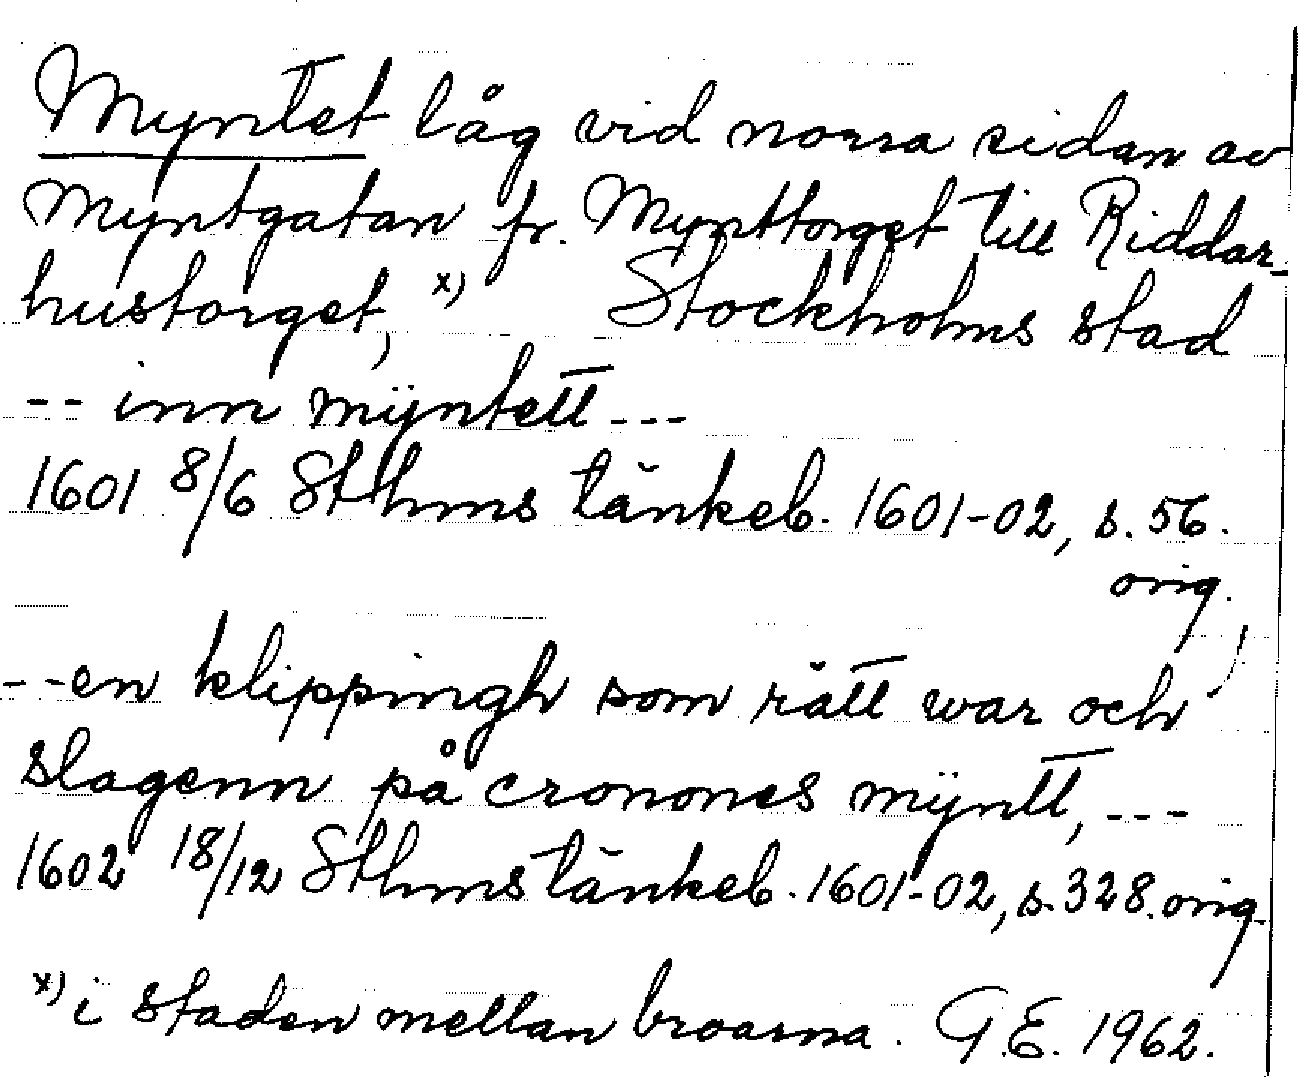 Myntet låg vid norra sidan av
Myntgatan fr. Mynttorget till Riddar-
hustorget, x) Stockholms stad
-- inn mÿntett ---
1601 8/6 Sthms tänkeb. 1601-02, s. 56.
orig.
--en klippingh som rätt war och
slagenn på cronones mÿntt, ---
1602 18/12 Sthms tänkeb. 1601-02, s. 328. orig.
x) i staden mellan broarna. G.E. 1962.